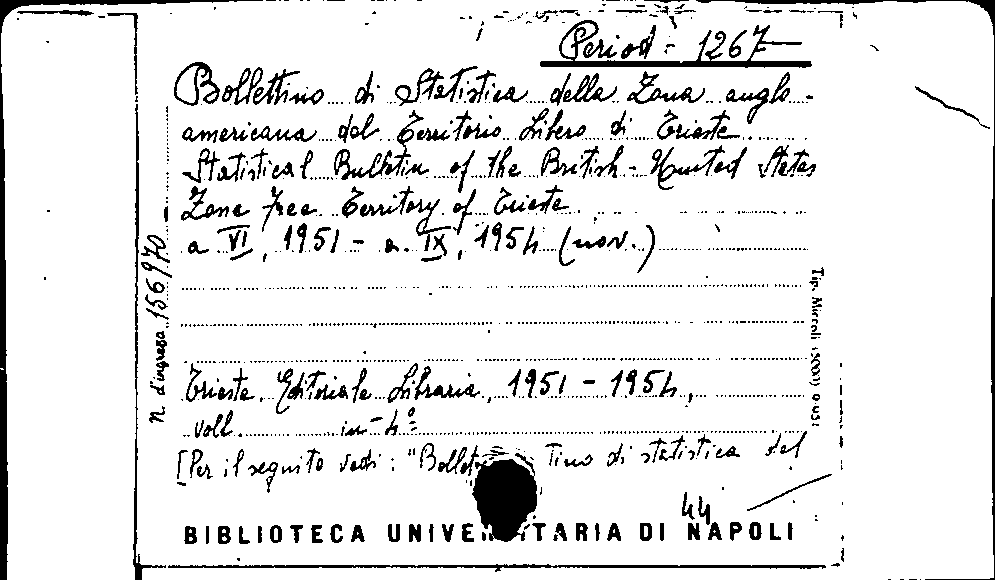 Period - 1267
Bollettino di Statistica della Zona anglo-
americana del Territorio Libero di Trieste.
Statistical Bulletin of the British-United States
Zone Free Territory of Trieste
a VI, 1951 - a. IX, 1954 (nov.)
Trieste. Editoriale Libraria, 1951 - 1954,
voll. in-4º
[Per il seguito vedi: "Bollettino di statistica del
44
BIBLIOTECA UNIVERSITARIA DI NAPOLI
N. d'ingresso 156970
Tip. Miccoli